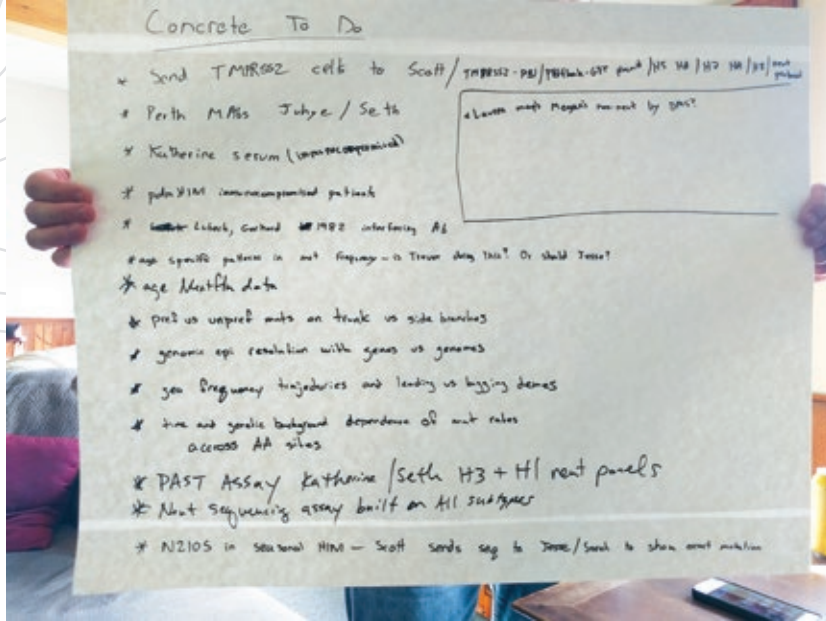 Concrete To Do
* Send TMPRSS2 cells to Scott / TMPRSS2-PB1/PB1flank-GFP / H5 HA / H7 HA / H1 / neut protocol
* Perth MAbs Juhye / Seth
* Katherine serum
* immunocompromised patients
* Gerhard 1982 interfering Ab
* age specific patterns in mut frequency - is Trevor doing this? Or should Jesse?
* age Nextflu data
* pref vs unpref muts on trunk vs side branches
* genomic epi resolution with genes vs genomes
* geo frequency trajectories and leading vs lagging demes
* time and genetic background dependence of mut rates
accross AA sites
* PAST ASSAY Katherine / Seth H3 + H1 neut panels
* Neut sequencing assay built on All subtypes
* N210S in seasonal H1N1 - Scott sends seq to Jesse/Sarah to show exact mutation
* Lauren maps Megan's non-neut by DMS?